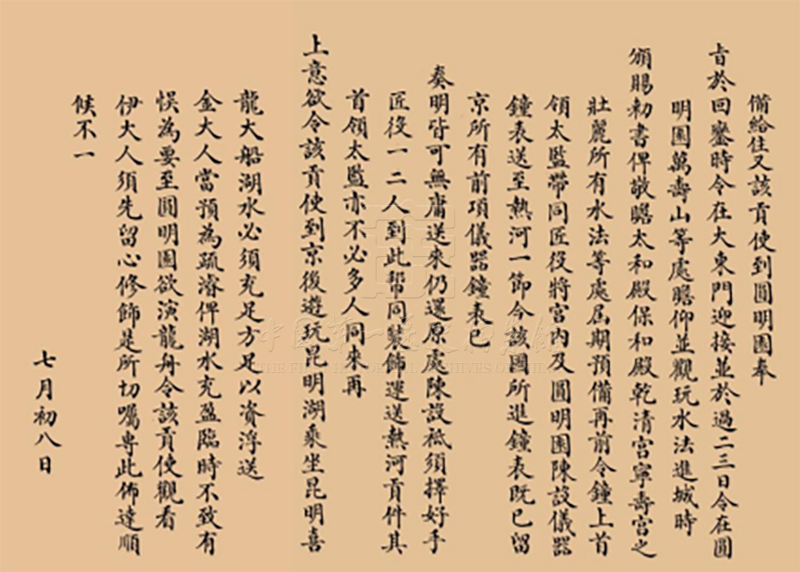 備給住又該貢使到圓明園奉
旨於回鑾時令在大東門迎接並於過二三日令在圓
明園萬壽山等處瞻仰並觀玩水法進城時
頒賜勅書俾敬瞻太和殿保和殿乾清宮寧壽宮之
壯麗所有水法等處屆期預備再前令鐘上首
領太監帶同匠役將宮內及圓明園陳設儀器
鐘表送至熱河一節今該國所進鐘表既已留
京所有前項儀器鐘表已
奏明皆可無庸送來仍還原處陳設祗須擇好手
匠役一二人到此幇同裝飾運送熱河貢件其
首領太監亦不必多人同來再
上意欲令該貢使到京後遊玩昆明湖乘坐昆明喜
龍大船湖水必須充足方足以資浮送
金大人當預為疏濬俾湖水充盈臨時不致有
悞為要至圓明園欲演龍舟令該貢使觀看
伊大人須先留心修飾是所切囑專此佈達順
候不一
七月初八日